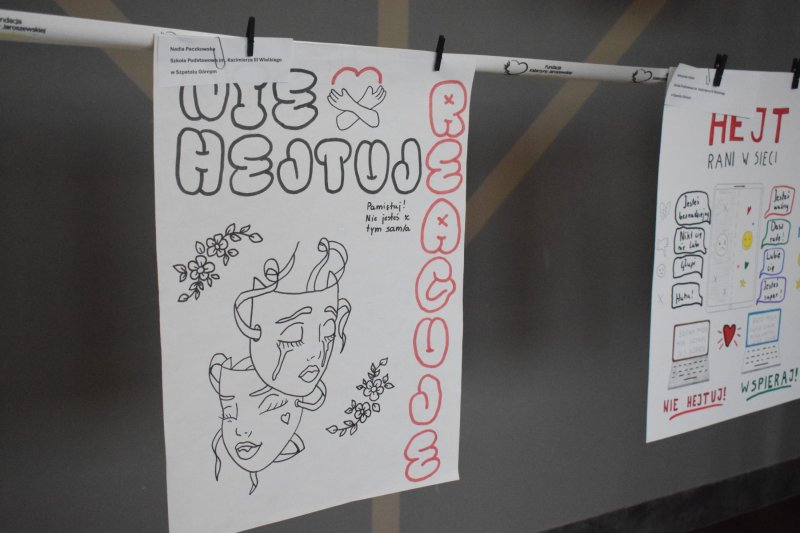 Fundacja
Jaroszewskiej
Fundacja
Katarzyny Jaroszewskiej
Nadia Paczkowska
Szkoła Podstawowa im. Kazimierza III Wielkiego
w Szpetalu Górnym
NIE
HEJTUJ
REAGUJE
Pamiętaj!
Nie jesteś z
tym sam/a
HEJT
RANI W SIECI
Jesteś
beznadziejny
Nikt cię
nie lubi
Głupi
Haha!
Jesteś
ważny
Dasz
radę
Lubię
cię
Jesteś
super!
NIE HEJTUJ!
WSPIERAJ!